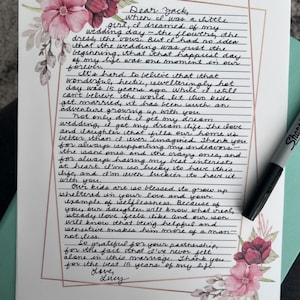 Dear Zach,
When I was a little
girl, I dreamed of my
wedding day - the flowers, the
dress, the vows. But I had no idea
that the wedding was just the
beginning, that that happiest day
of my life was one moment in our
forever.
It's hard to believe that that
wonderful, hectic, sweltering hot
day was 15 years ago. While I still
can't believe the world let two kids
get married, it has been such an
adventure growing up with you.
Not only did I get my dream
wedding, I got my dream life. The love
and laughter that fills our home is
better than I ever imagined. Thank you
for always supporting my endeavors -
the sane ones and the crazy ones, and
for always having my best interests
at heart. I'm so lucky to have this
life, and I'm even luckier to have it
with you.
Our kids are so blessed to grow up
sheltered in your love and your
example of selflessness. Because of
you, our daughter will know what real,
steady love feels like and our sons
will know that being helpful and
sensitive makes him more of a man -
not less.
So grateful for your partnership,
for the fact that I've never felt
alone in this marriage. Thank you
for the best 15 years of my life.
Love,
Lucy